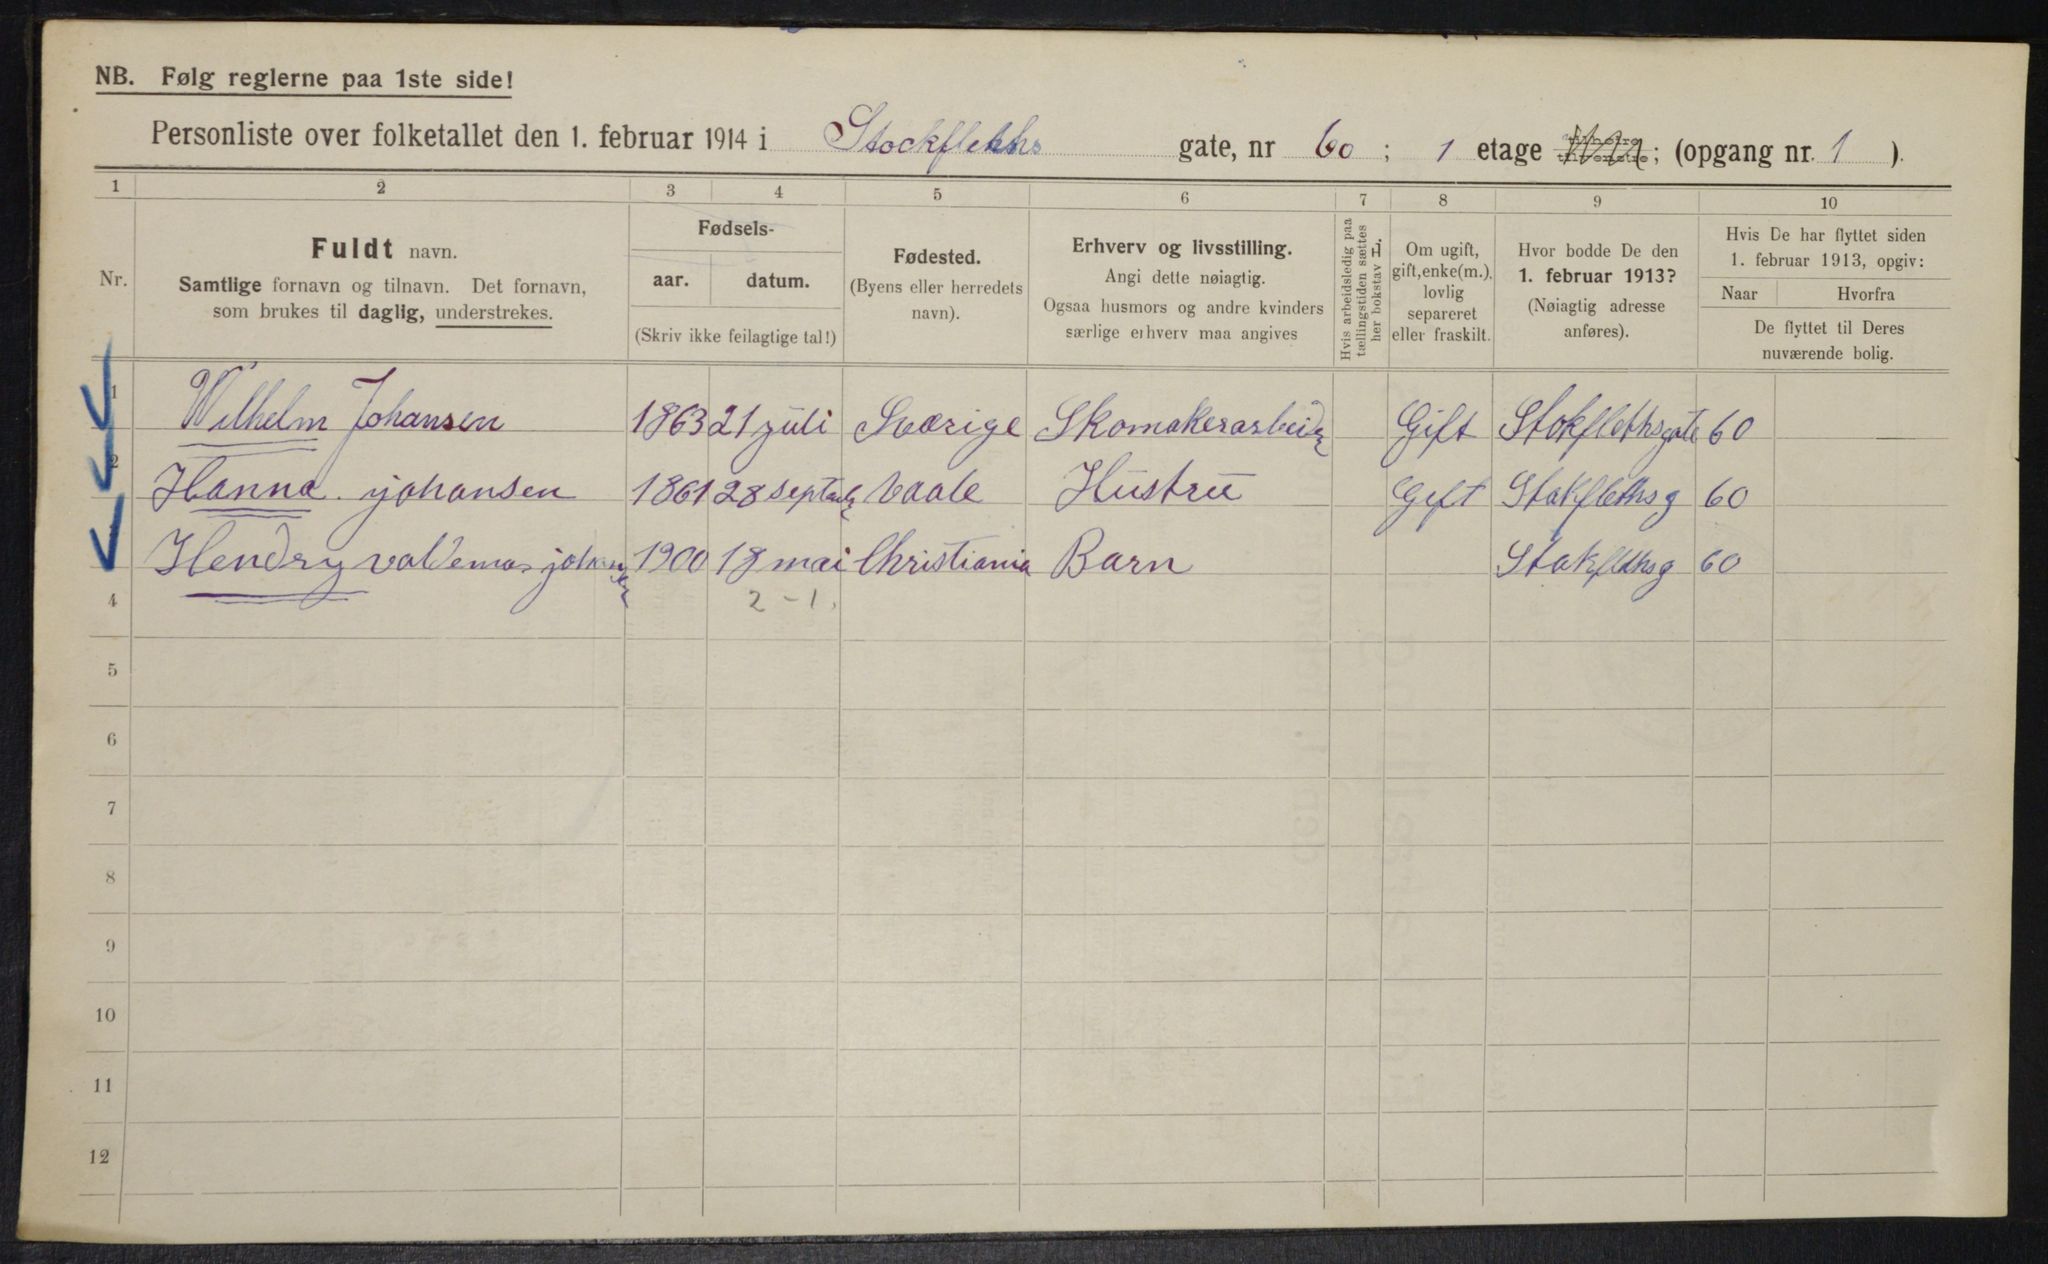 NB. Følg reglerne paa 1ste side!
Personliste over folketallet den 1. februar 1914 i Stockfleths gate, nr 60 ; 1 etage ; (opgang nr. 1 ).
1 2 3 4 5 6 7 8 9 10
Nr.
Fuldt navn.
Samtlige fornavn og tilnavn. Det fornavn,
som brukes til daglig, understrekes.
Fødsels-
aar. datum.
(Skriv ikke feilagtige tal!)
Fødested.
(Byens eller herredets
navn).
Erhverv og livsstilling.
Angi dette nøiagtig.
Ogsaa husmors og andre kvinders
særlige erhverv maa angives
Hvis arbeidsledig paa
tællingstiden sættes
her bokstav L.
Om ugift,
gift, enke(m.),
lovlig
separeret
eller fraskilt.
Hvor bodde De den
1. februar 1913?
(Nøiagtig adresse
anføres).
Hvis De har flyttet siden
1. februar 1913, opgiv:
Naar Hvorfra
De flyttet til Deres
nuværende bolig.
1 Wilhelm Johansen 1863 21 juli Sværige Skomakerarbeider Gift Stokflethsgate 60
2 Hanna johansen 1861 28 septbr Vaale Hustru Gift Stokflethsg 60
Hendry valdemar johansen 1900 18 mai Christiania Barn Stokflethsg 60
4 2-1.
5
6
7
8
9
10
11
12